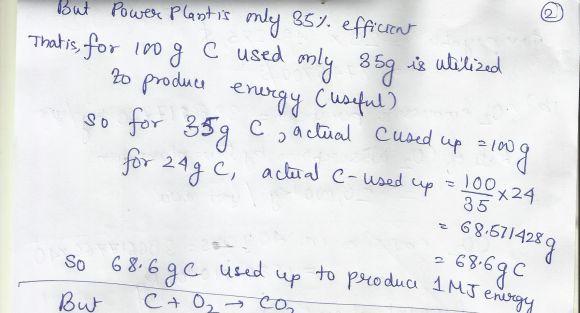 But Power Plant is only 35% efficient
②
That is, for 100 g C used only 35g is utilized
to produce energy (useful)
so for 35g C, actual C used up = 100 g
for 24 g C, actual C-used up = 100/35 × 24
= 68.571428 g
= 68.6 g C
So 68.6 g C used up to produce 1 MJ energy
But C + O₂ → CO₂